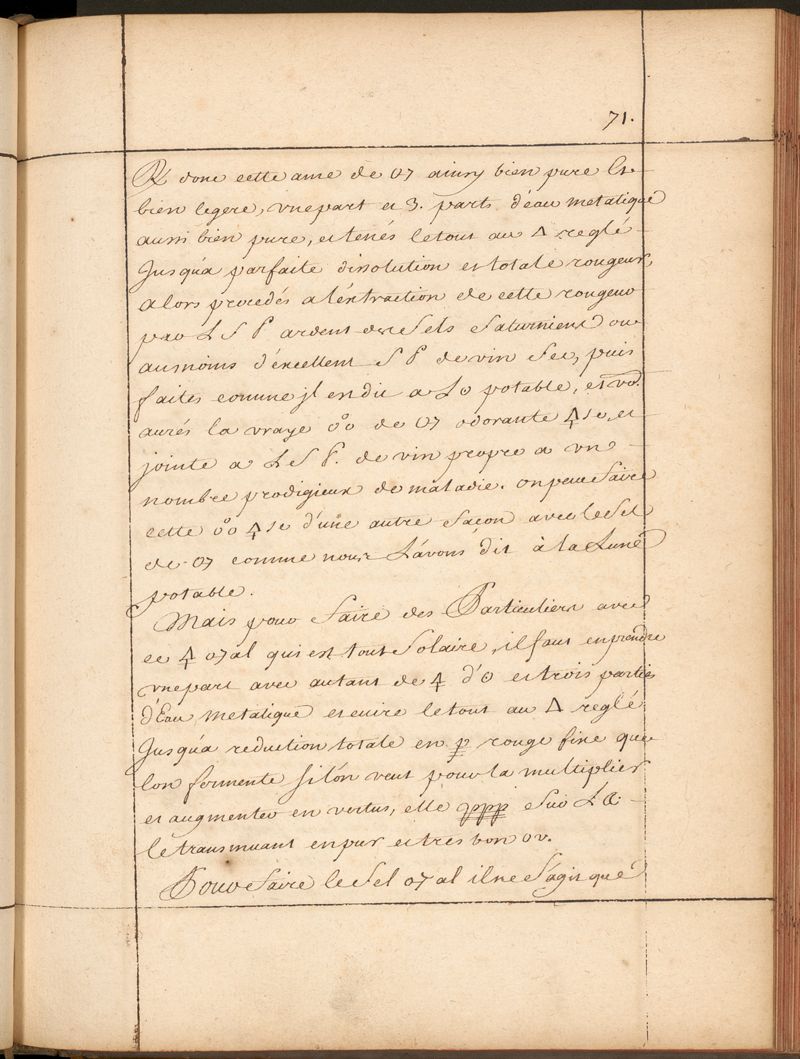 71.
℞ donc cette ame de 07 ainsy bien pure Et
bien legere, vne part et 3. parts d'eau metalique
aussi bien pure, et tenés le tout au △ reglé
Jusqu'a parfaite dissolution et totale rougeur,
alors procedés a l'éxtraction de cette rougeur
par L S P ardent des Sels Saturniens ou
au moins d'éxcellent S P de vin Sec, puis
faites comme jl en dit a L☉ potable, et vo.
aurés la vraye o°o de 07 odorante 🜍se, et
jointe a L S P. de vin propre a vn
nombre prodigieux de maladie. on peut faire
cette o°o 🜍se d'une autre façon avec le Sel
de 07 comme nous L'avons dit à la Lune
potable.
Mais pour faire des Particuliers avec
ce 🜍 07al qui est tout Solaire, il faut en prendre
vne part avec autant de 🜍 d'☉ et trois parties
d'Eau metalique et cuire le tout au △ reglé
Jusqu'a reduction totale en p rouge fine que
lon fermente si lón veut pour la multiplier
et augmenter en vertus, elle ppp sur L
le transmuant en pur et tres bon or.
Pour faire le Sel 07al il ne S'agit que